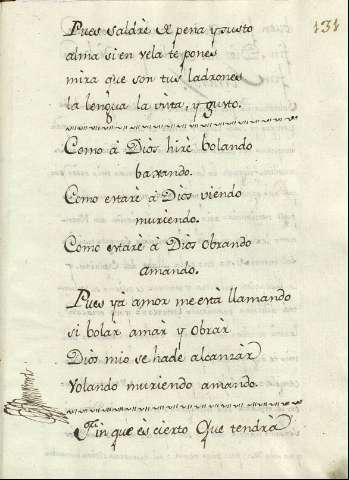 131
Pues saldrè de pena y susto
alma si en vela te pones
mira que son tus ladrones
la lengua la vista, y gusto.
Como á Diòs hirè bolando
baxando.
Como estarè á Diòs viendo
muriendo.
Como estarè á Diòs obrando
amando.
Pues yá amor me està llamando
si bolàr amàr y obràr
Diòs mio se hadè alcanzàr
Volando muriendo amando.
Fin que ès cierto Que tendrà